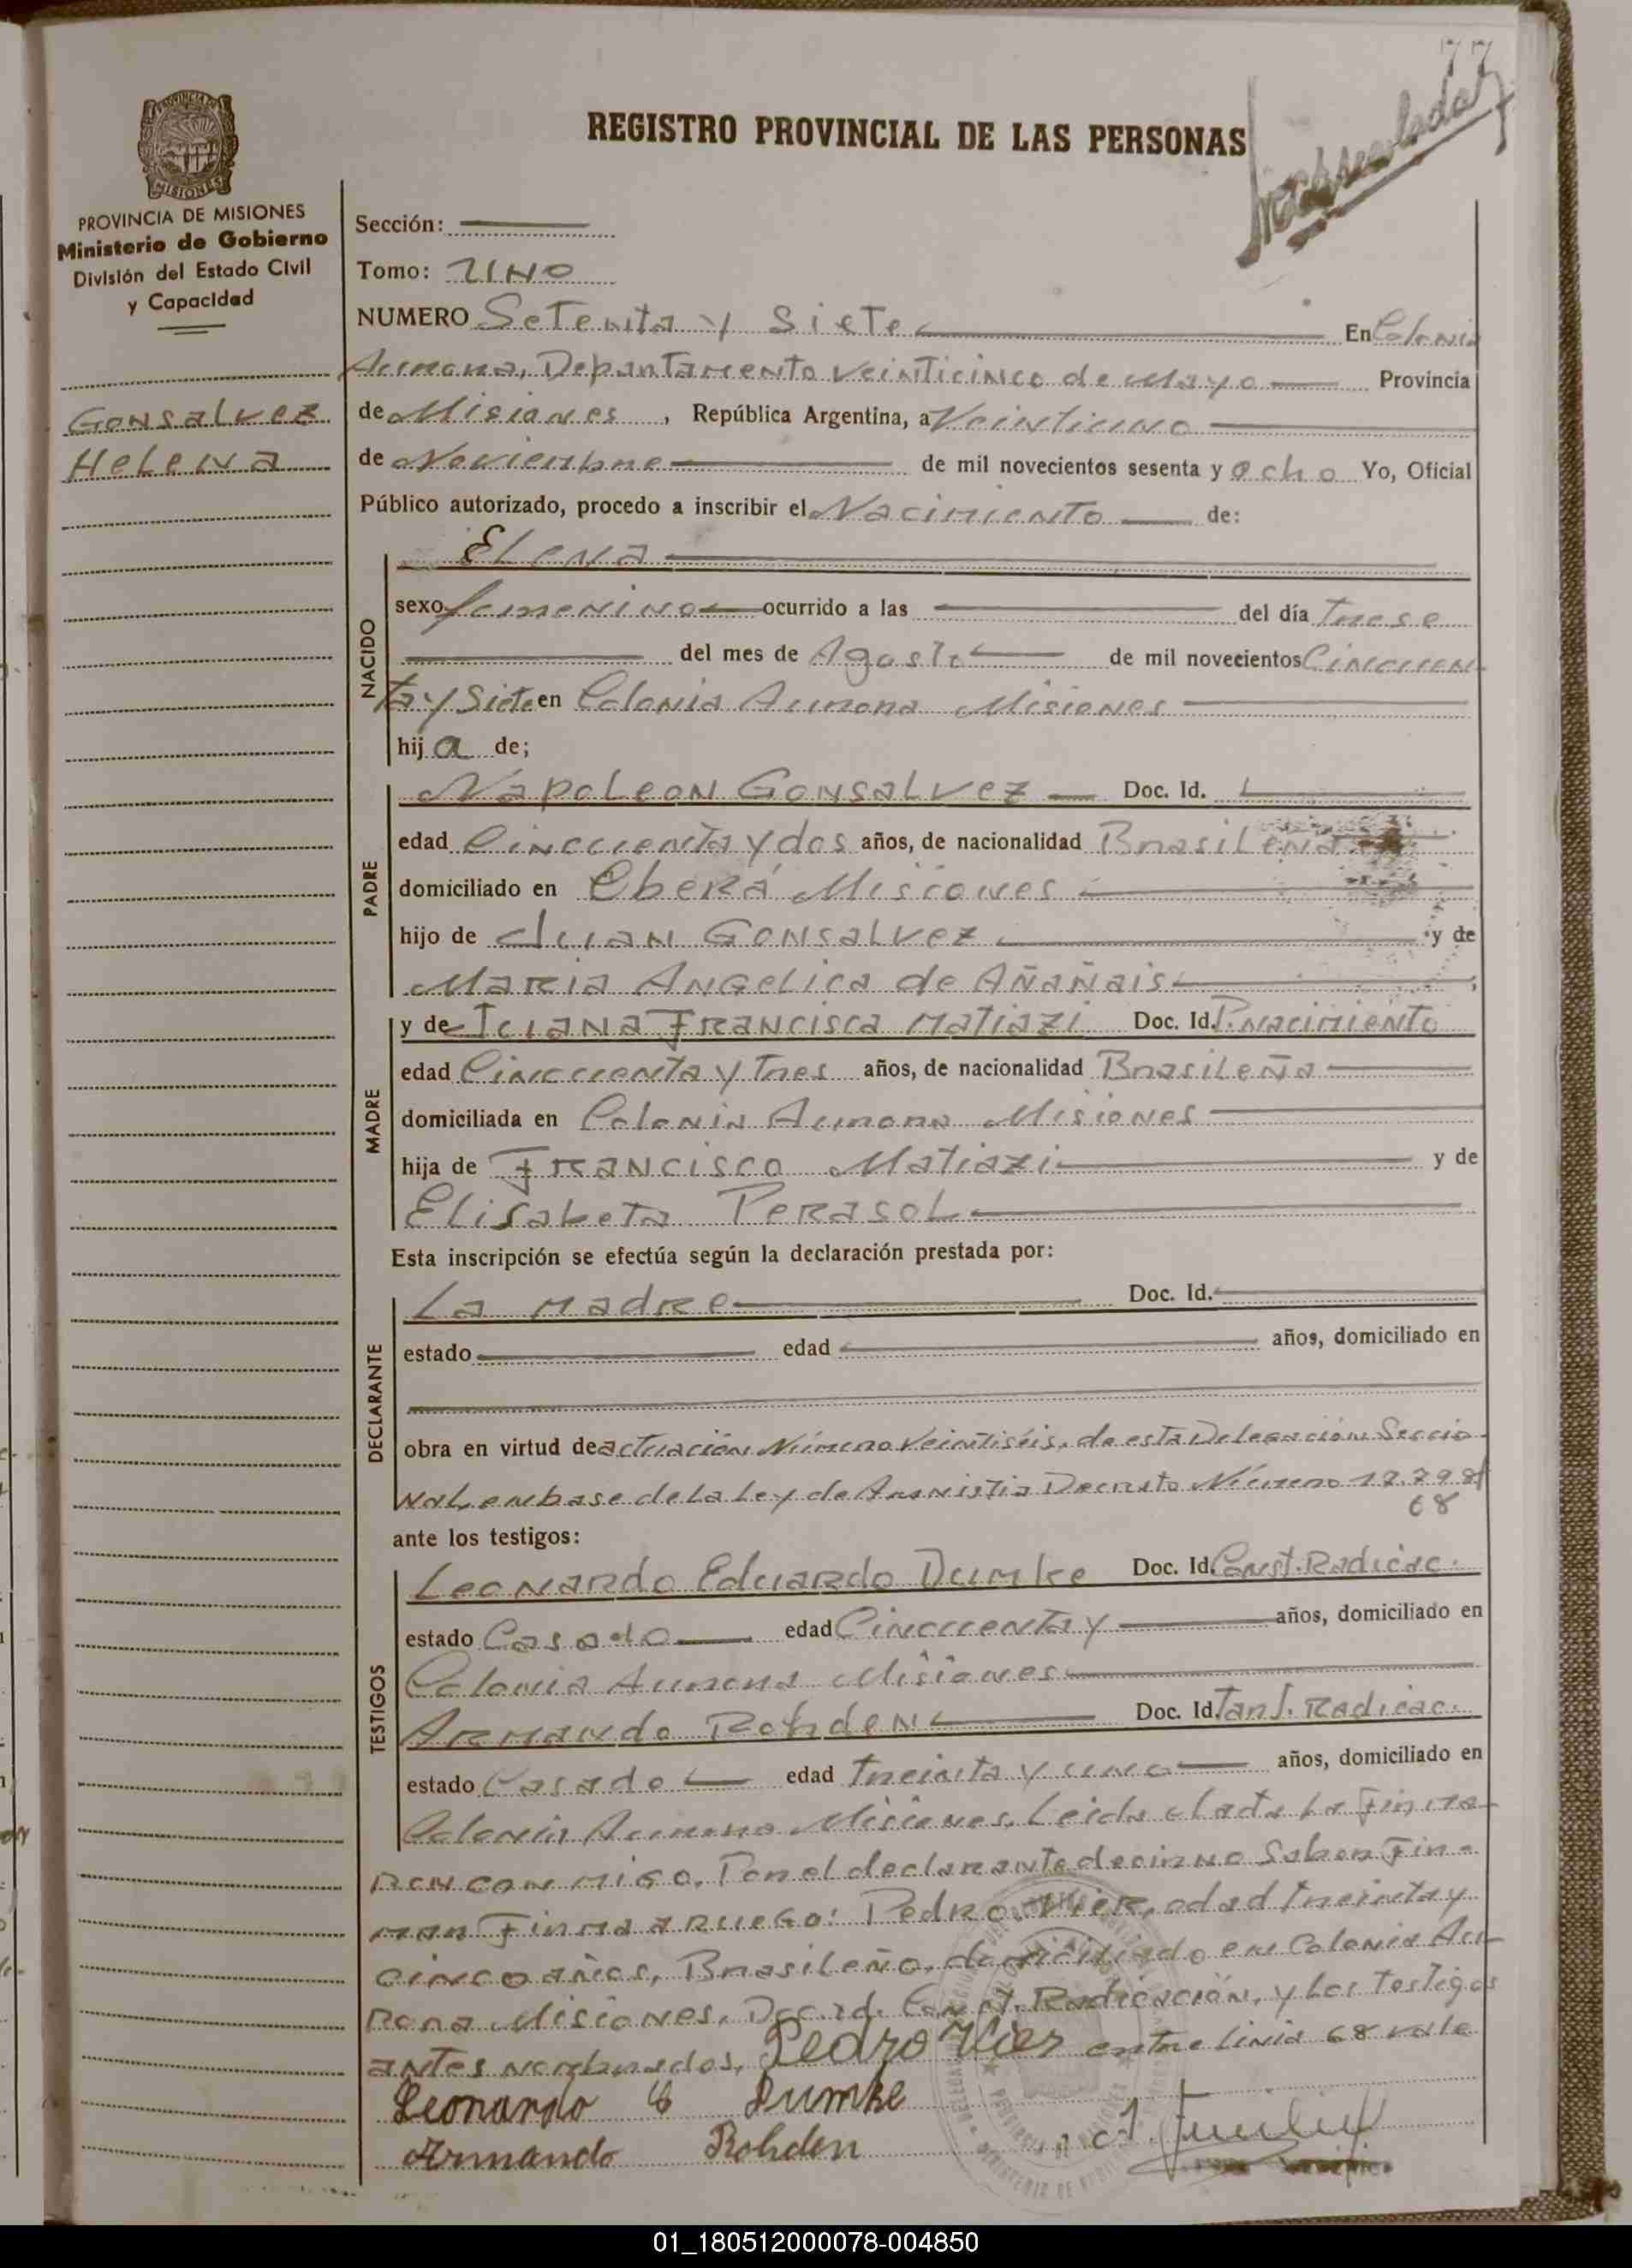 77
REGISTRO PROVINCIAL DE LAS PERSONAS
PROVINCIA DE MISIONES
Ministerio de Gobierno
División del Estado Civil
y Capacidad
Gonsalvez
Helena
Sección:
Tomo: UNO
NUMERO Setenta y Siete En Colonia
Aurora, Departamento Veinticinco de Mayo Provincia
de Misiones, República Argentina, a Veintiuno
de Noviembre de mil novecientos sesenta y ocho Yo, Oficial
Público autorizado, procedo a inscribir el Nacimiento de:
Elena
NACIDO
sexo femenino ocurrido a las del día Trese
del mes de Agosto de mil novecientos Cincuen
ta y Siete en Colonia Aurora Misiones
hija de;
PADRE
Napoleon Gonsalvez Doc. Id.
edad Cincuenta y dos años, de nacionalidad Brasileña
domiciliado en Oberá Misiones
hijo de Juan Gonsalvez y de
Maria Angelica de Añañais;
MADRE
y de Iciana Francisca Matiazi Doc. Id. P. nacimiento
edad Cincuenta y Tres años, de nacionalidad Brasileña
domiciliada en Colonia Aurora Misiones
hija de Francisco Matiazi y de
Elisabeta Perasol
Esta inscripción se efectúa según la declaración prestada por:
DECLARANTE
La Madre Doc. Id.
estado edad años, domiciliado en
obra en virtud de actuación Número Veintiséis, de esta Delegación Seccio-
nal, en base de la Ley de Amnistia Decreto Número 17.798/
68
ante los testigos:
TESTIGOS
Leonardo Eduardo Dumke Doc. Id. Const. Radicac.
estado Casado edad Cincuenta y años, domiciliado en
Colonia Aurora Misiones
Armando Rohden Doc. Id. Radicac.
estado Casado edad Treinta y uno años, domiciliado en
Colonia Aurora Misiones. Leida el acta la Firma-
ron conmigo. Por el declarante decir no Saber Fir-
mar Firma a ruego: Pedro Vier, edad treinta y
cinco años, Brasileño, domiciliado en Colonia Au-
rora Misiones, Doc. id. Const. Radicación, y los Testigos
antes nombrados, Pedro Vier entre linia 68 vale
Leonardo E Dumke
Armando Rohden
01_180512000078-004850